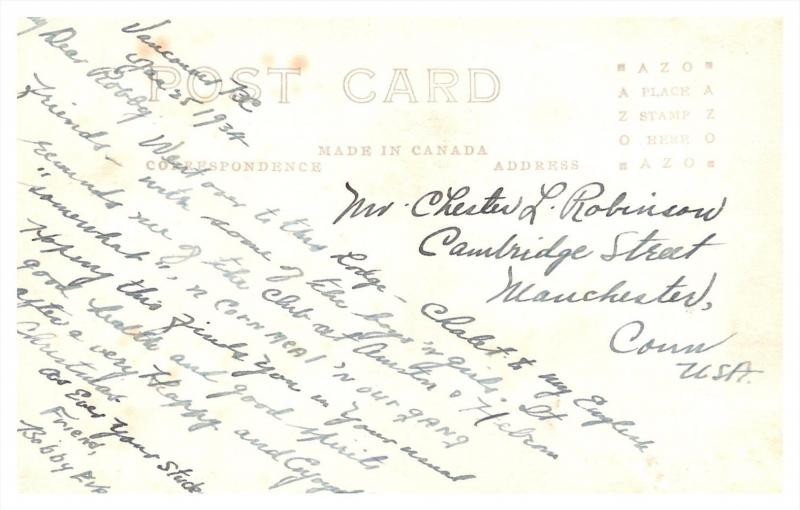 POST CARD
MADE IN CANADA
CORRESPONDENCE
ADDRESS
AZO
A PLACE A
Z STAMP Z
O HERE O
AZO
Vancouver BC
25 1934
My Dear Robby Went over to this Lodge - Chalet to my English
friends - with some of the boys 'n girls. It
reminds me of the Club at Austin & Hebron
"somewhat", 'n CORN MEAL 'N OUR GANG
Hoping this finds you in your usual
good health and good spirits
after a very Happy and
Christmas
as Ever Your
Friend,
Bobby
Mr. Chester L. Robinson
Cambridge Street
Manchester,
Conn
USA.